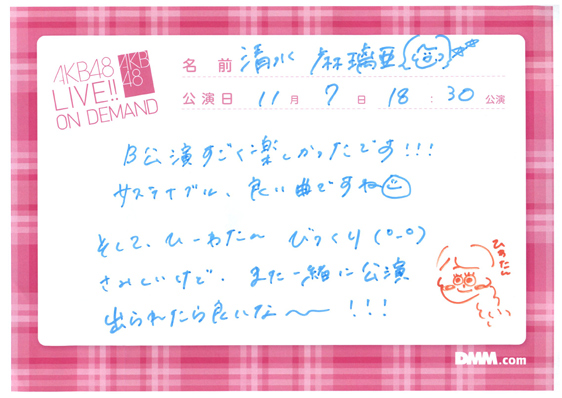 AKB48
LIVE!!
ON DEMAND
AKB
48
名 前 清水 麻璃亜
公演日 11月 7日 18:30公演
B公演すごく楽しかったです!!!
サステイナブル、良い曲ですね
そして、ひーわたん びっくり(°_°)
さみしいけど、また一緒に公演
出られたら良いな〜!!!
ひわたん
DMM.com